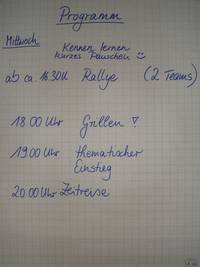 Programm
Mittwoch
Kennen lernen
kurzes Päuschen
ab ca. 1630U Rallye (2 Teams)
18.00 Uhr Grillen!
19.00 Uhr thematischer
Einstieg
20.00 Uhr Zeitreise